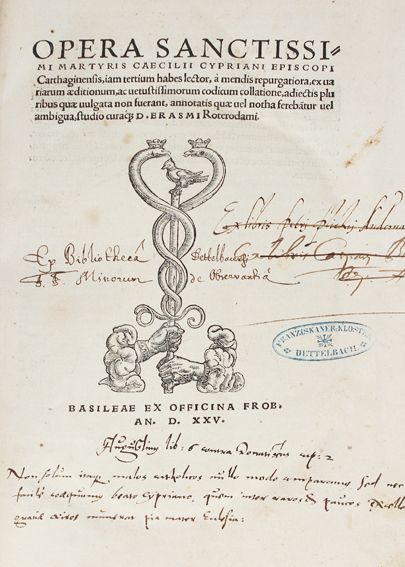 OPERA SANCTISSI⸗
MI MARTYRIS CAECILII CYPRIANI EPISCOPI
Carthaginensis, iam tertium habes lector, à mendis repurgatiora, ex ua
riarum æditionum, ac uetustissimorum codicum collatione, adiectis plu
ribus quæ uulgata non fuerant, annotatis quæ uel notha ferebãtur uel
ambigua, studio curaq; D. ERASMI Roterodami.
Ex libris
Ex Bibliothecâ Dettelbac
F. F. Minorum de Obseruantiâ
FRANZISKANER-KLOSTER
DETTELBACH
BASILEAE EX OFFICINA FROB.
AN. D. XXV.
Augustinus lib: 6 contra Donatistas cap: 2
Non solum malos catholicos nullo modo comparamus Sed nec
beato Cypriano, quem inter raros & paucos
numerat pia mater Ecclesia: